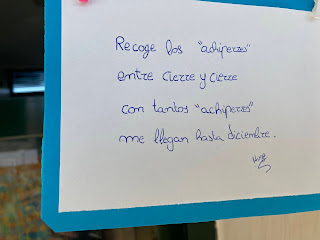 Recoge los "achiperres"
entre cierre y cierre
con tantos "achiperres"
me llegan hasta diciembre.